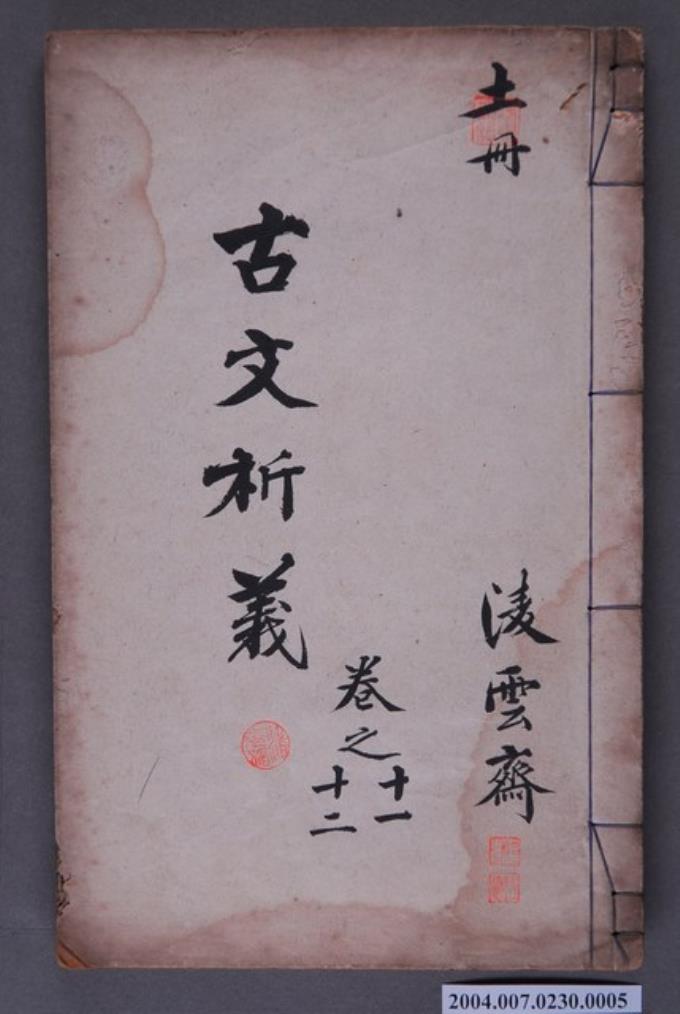 土冊
凌雲齋
古文析義
卷之十一
十二
2004.007.0230.0005